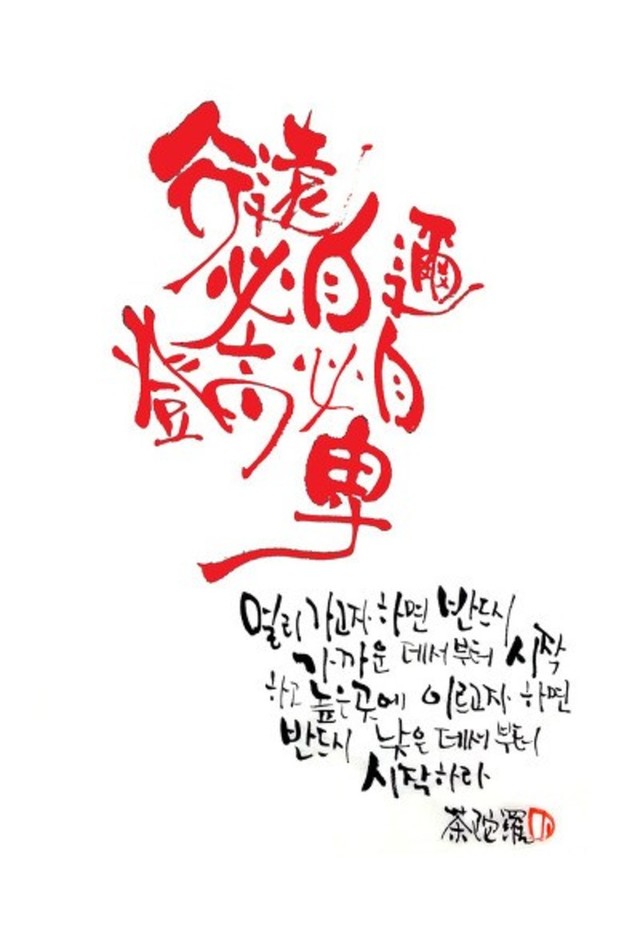 行遠
必自邇
登高必自
卑
멀리 가고자 하면 반드시
가까운 데서부터 시작
하고 높은 곳에 이르고자 하면
반드시 낮은 데서부터
시작하라
茶陀羅